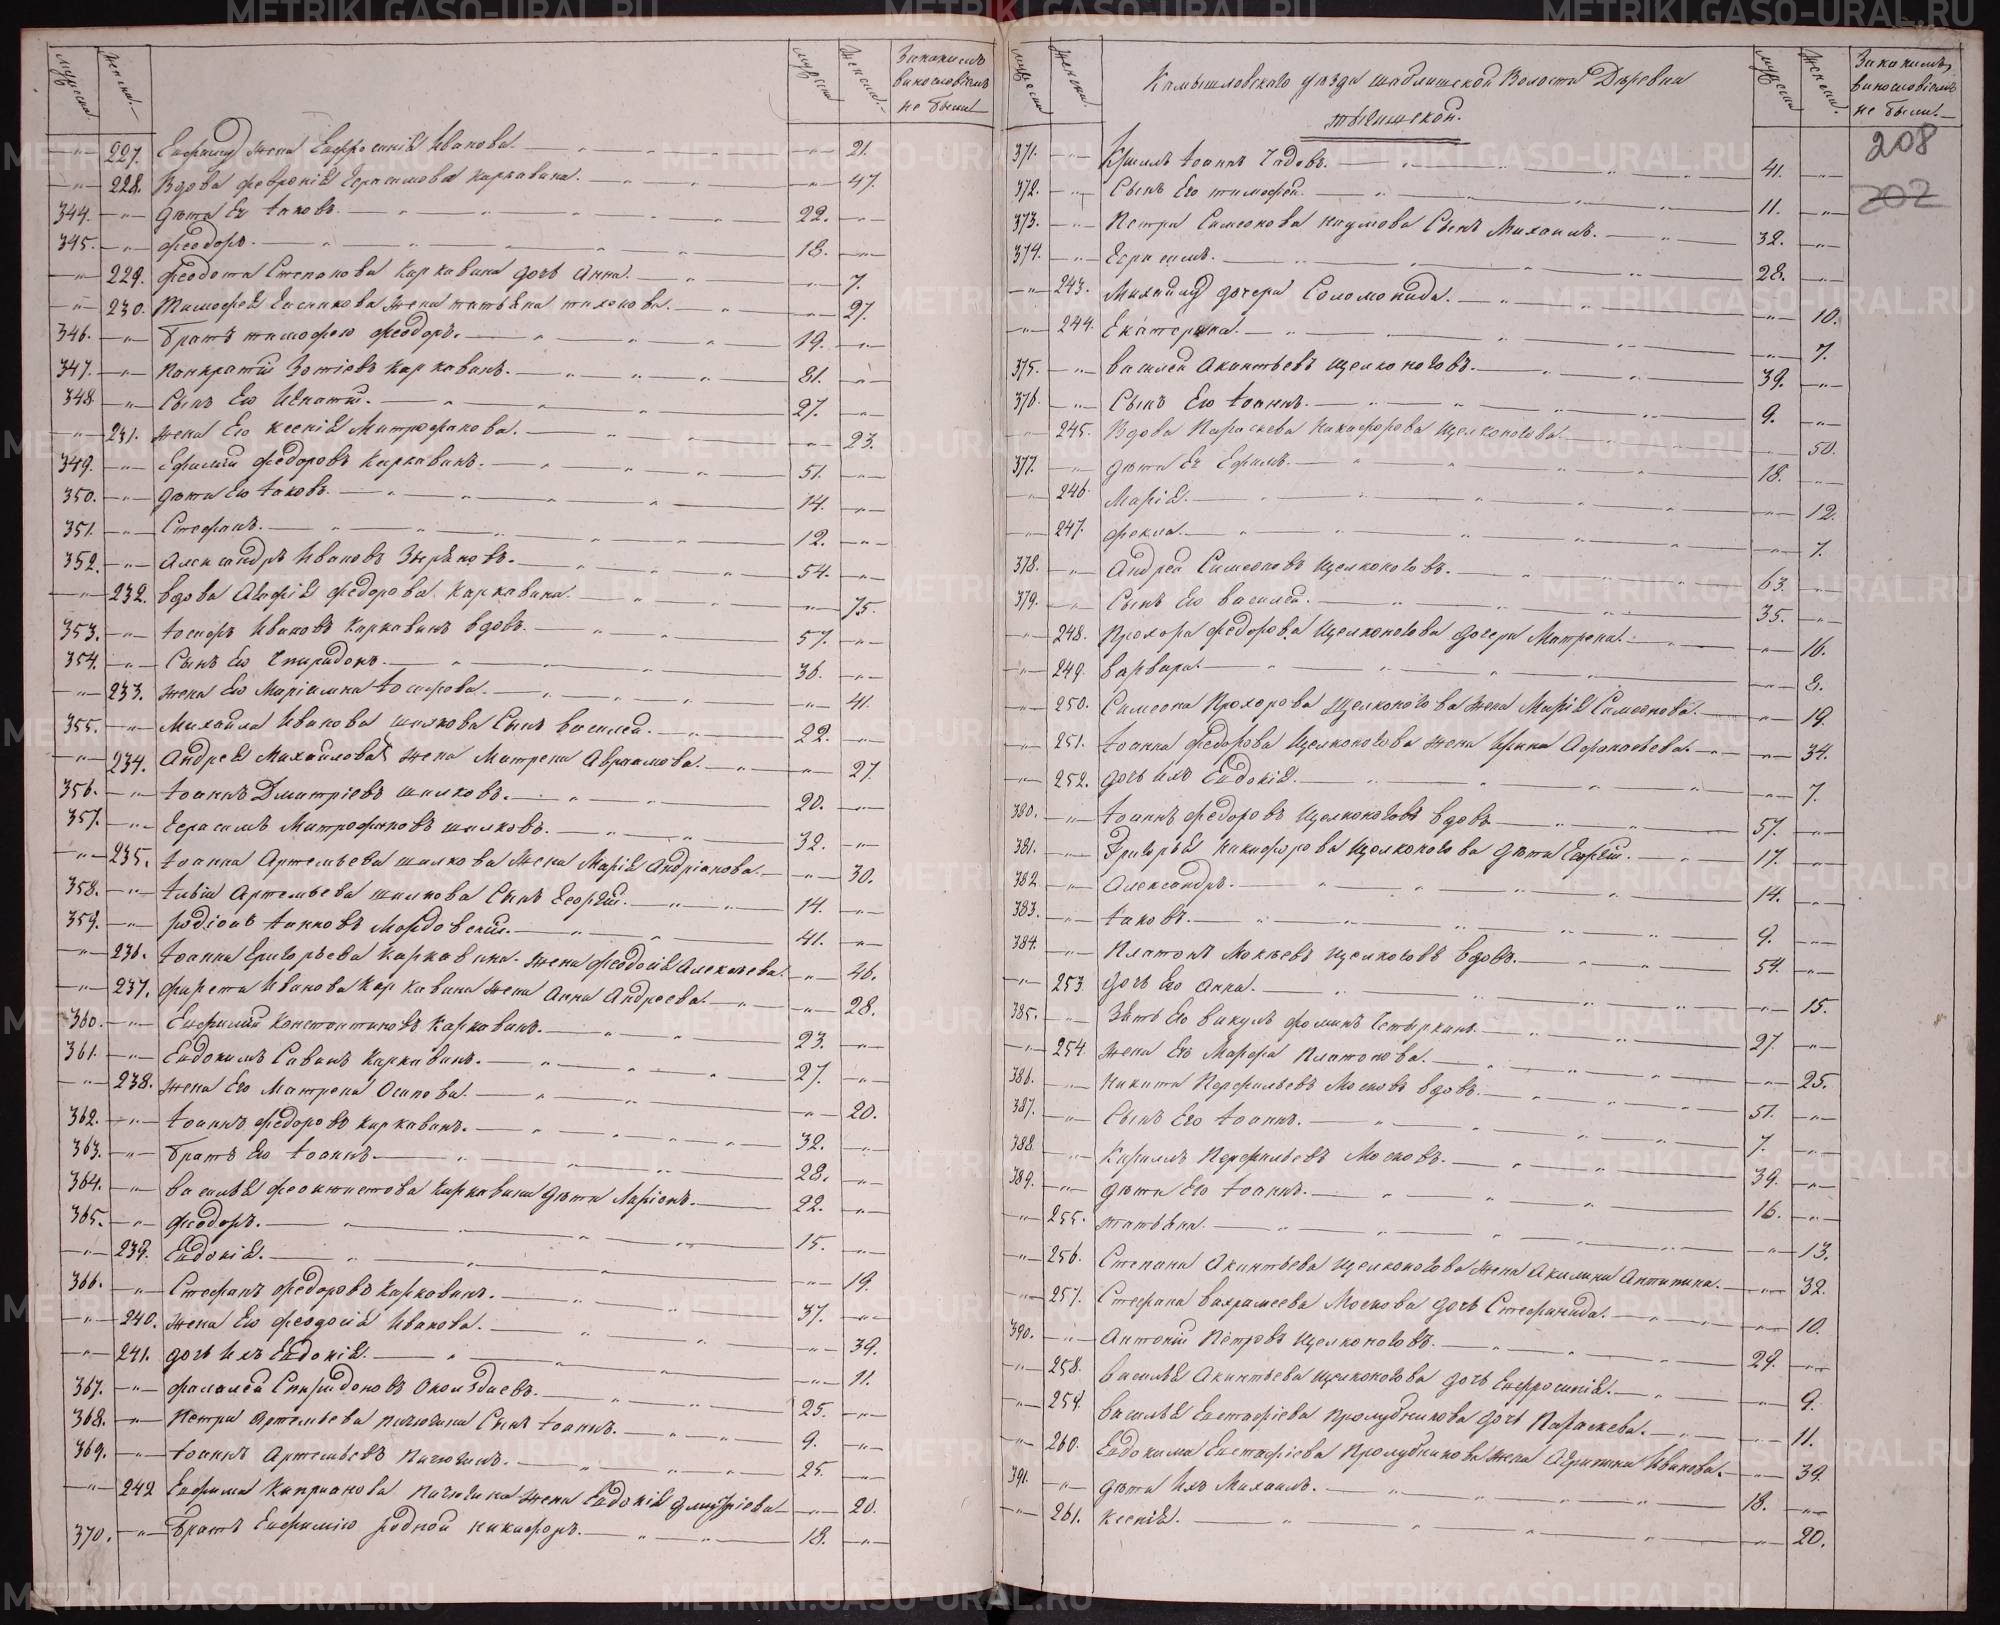 мужеска
женска.
мужеска
женска.
За какимъ
винословіемъ
не были
—"— 227. Евфимія жена Евфросинія Иванова. —"— 21.
—"— 228. Вдова Февронія Герасимова Каркавина. —"— 47.
344. —"— Дѣти Ея Іаковъ. 22. —"—
345. —"— Феодоръ. 18. —"—
—"— 229. Феодота Степанова Каркавина дочь Анна. —"— 7.
—"— 230. Тимофея Евсиикова жена татьяна тихонова. —"— 27.
346. —"— Братъ тимофею Феодоръ. 19. —"—
347. —"— Панкратій Зотіевъ Каркавинъ. 81. —"—
348 —"— Сынъ Его Игнатій. 27. —"—
—"— 231. жена Его Ксенія Митрофанова. —"— 23.
349. —"— Ефимій Федоровъ Каркавинъ. 51. —"—
350. —"— Дѣти Его Іаковъ. 14. —"—
351. —"— Стефанъ. 12. —"—
352. —"— Александръ Ивановъ Зыряновъ. 54. —"—
—"— 232. вдова Агафія Федорова Каркавина. —"— 75.
353. —"— Іосифъ Ивановъ Каркавинъ вдовъ. 57. —"—
354. —"— Сынъ Его Спиридонъ. 36. —"—
—"— 233. жена Его Маріамна Іосифова. —"— 41.
355. —"— Михаила Иванова шилкова Сынъ Василей. 22. —"—
—"— 234. Андрея Михайлова жена Матрена Авраамова. —"— 27.
356. —"— Іоаннъ Дмитріевъ шилковъ. 20. —"—
357. —"— Герасимъ Митрофановъ шилковъ. 32. —"—
—"— 235. Іоанна Артемьева шилкова жена Марія Андріанова. —"— 30.
358. —"— Іивіи Артемьева шилкова Сынъ Георгій. 14. —"—
359. —"— Родіонъ Іаковъ Мордовскій. 41. —"—
—"— 236. Іоанна Григорьева Каркавина жена Феодосія Алексѣева. —"— 46.
—"— 237. Фирста Иванова Каркавина жена Анна Андреева. —"— 28.
360. —"— Евфимій Константиновъ Каркавинъ. 23. —"—
361. —"— Евдокимъ Савинъ Каркавинъ. 27. —"—
—"— 238. жена Его Матрена Осипова. —"— 20.
362. —"— Іоаннъ Федоровъ Каркавинъ. 32. —"—
363. —"— Братъ Его Іоаннъ. 28. —"—
364. —"— Василья Феоктистова Каркавина дѣти Ларіонъ. 22. —"—
365. —"— Феодоръ. 15. —"—
—"— 239. Евдокія. —"— 19
366. —"— Стефанъ Федоровъ Каркавинъ. 37. —"—
—"— 240. жена Его Феодосія Иванова. —"— 39.
—"— 241. дочь Ихъ Евдокія. —"— 11.
367. —"— Фалалей Спиридоновъ 25. —"—
368. —"— Петра Артемьева Пичюгина Сынъ Іоаннъ. 9. —"—
369. —"— Іоаннъ Артемьевъ Пичюгинъ. 25. —"—
—"— 242 Евфима Киприанова Пичюгина жена Евдокія Дмитріева —"— 20.
370. —"— Братъ Евфимію родной Никифоръ. 18. —"—
мужеска
женска.
Камышловскаго уѣзда шаблишской Волости Деревни
тыгишской.
мужеска
женска.
За какимъ
винословіемъ
не были.
208
202
371. —"— Кирилъ Іоаннъ Гадовъ. 41. —"—
372. —"— Сынъ Его тимофей. 11. —"—
373. —"— Петра Симеонова Наумова Сынъ Михаилъ. 32. —"—
374. —"— Герасимъ. 28. —"—
—"— 243. Михаила дочери Соломонида. —"— 10.
—"— 244. Екатерина. —"— 7.
375. —"— Василей Акинтьевъ Щелконоговъ. 39. —"—
376. —"— Сынъ Его Іоаннъ. 9. —"—
—"— 245. Вдова Параскева Никифорова Щелконогова. —"— 50.
377. —"— дѣти Ея Ефимъ. 18. —"—
—"— 246 Марія. —"— 12.
—"— 247. Фекла. —"— 7.
378. —"— Андрей Симеоновъ Щелконоговъ. 63. —"—
379. —"— Сынъ Его Василей. 35. —"—
—"— 248. Прохора Федорова Щелконогова дочери Матрена. —"— 16.
—"— 249. Варвара. —"— 8.
—"— 250. Симеона Прохорова Щелконогова жена Марія Симеонова. —"— 19.
—"— 251. Іоанна Федорова Щелконогова жена Ирина Афонасьева. —"— 34.
—"— 252. дочь Ихъ Евдокія. —"— 7.
380. —"— Іоаннъ Федоровъ Щелконоговъ вдовъ 57. —"—
381. —"— Григорья Никифорова Щелконогова дѣти Георгій. 17. —"—
382. —"— Александръ. 14. —"—
383. —"— Іаковъ. 9. —"—
384. —"— Платонъ Мокѣевъ Щелконоговъ вдовъ. 54. —"—
—"— 253. дочь Его Анна. —"— 15.
385. —"— Зять Его Викулъ Фоминъ Четыркинъ. 27. —"—
—"— 254. жена Его Марфа Платонова. —"— 25.
386. —"— Никита Перфильевъ Московъ вдовъ. 51. —"—
387. —"— Сынъ Его Іоаннъ. 7. —"—
388. —"— Кириллъ Перфильевъ Московъ. 39. —"—
389. —"— дѣти Его Іоаннъ. 16. —"—
—"— 255. татьяна. —"— 13.
—"— 256. Степана Акинтьева Щелконогова жена Акилина Антипина. —"— 32.
—"— 257. Стефана Вахрамеева Москова дочь Стефанида. —"— 10.
390. —"— Антоній Петровъ Щелконоговъ. 29. —"—
—"— 258. Василья Акинтьева Щелконогова дочь Евфросинія. —"— 9.
—"— 259. Василья Евстафіева Пролубникова дочь Параскева. —"— 11.
—"— 260. Евдокима Евстафіева Пролубникова жена Агрипина Иванова. —"— 39
391. —"— дѣти Ихъ Михаилъ. 18. —"—
—"— 261. Ксенія. —"— 20.
METRIKI.GASO-URAL.RU